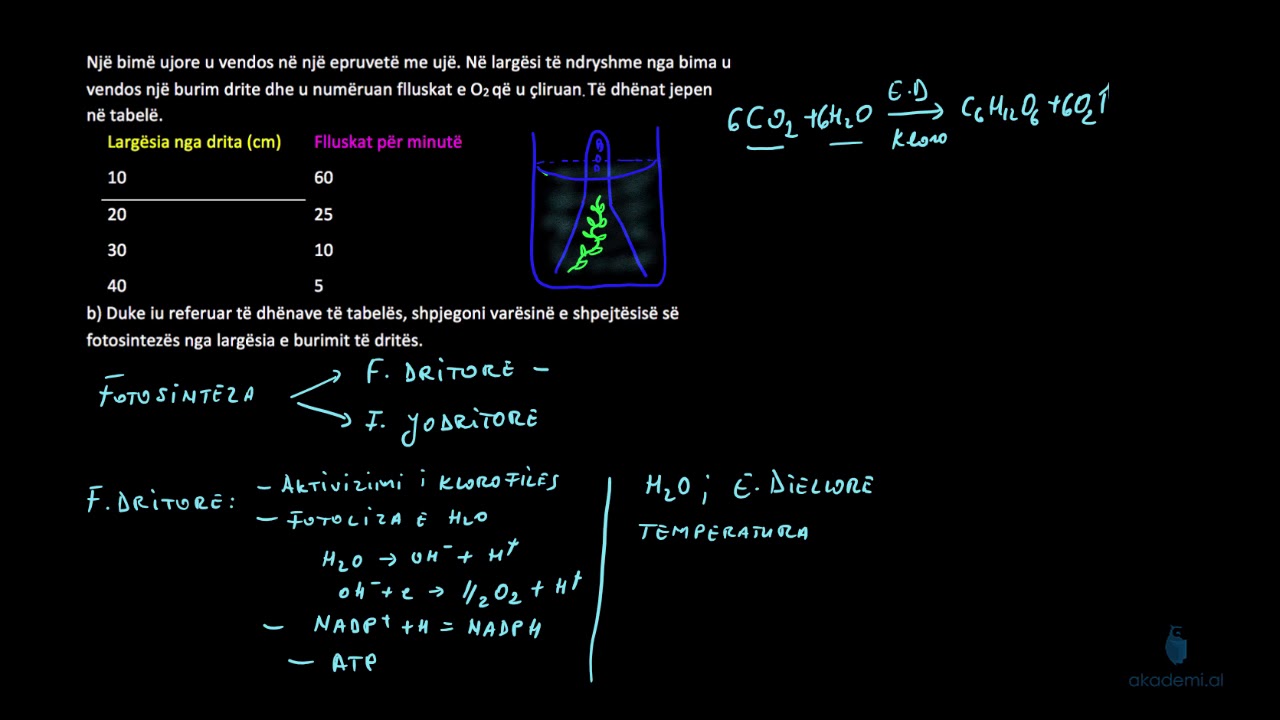 Një bimë ujore u vendos në një epruvetë me ujë. Në largësi të ndryshme nga bima u
vendos një burim drite dhe u numëruan flluskat e O₂ që u çliruan. Të dhënat jepen
në tabelë.
Largësia nga drita (cm) Flluskat për minutë
10 60
20 25
30 10
40 5
6CO₂ + 6H₂O → C₆H₁₂O₆ + 6O₂↑
E.D
Kloro
b) Duke iu referuar të dhënave të tabelës, shpjegoni varësinë e shpejtësisë së
fotosintezës nga largësia e burimit të dritës.
FOTOSINTEZA
F. DRITORE –
F. JODRITORE
F. DRITORE:
– AKTIVIZIMI i KLOROFILËS
– FOTOLIZA E H₂O
H₂O → OH⁻ + H⁺
OH⁻ + e → 1/2O₂ + H⁺
– NADP⁺ + H = NADPH
– ATP
H₂O ; E. DIELLORE
TEMPERATURA
akademi.al